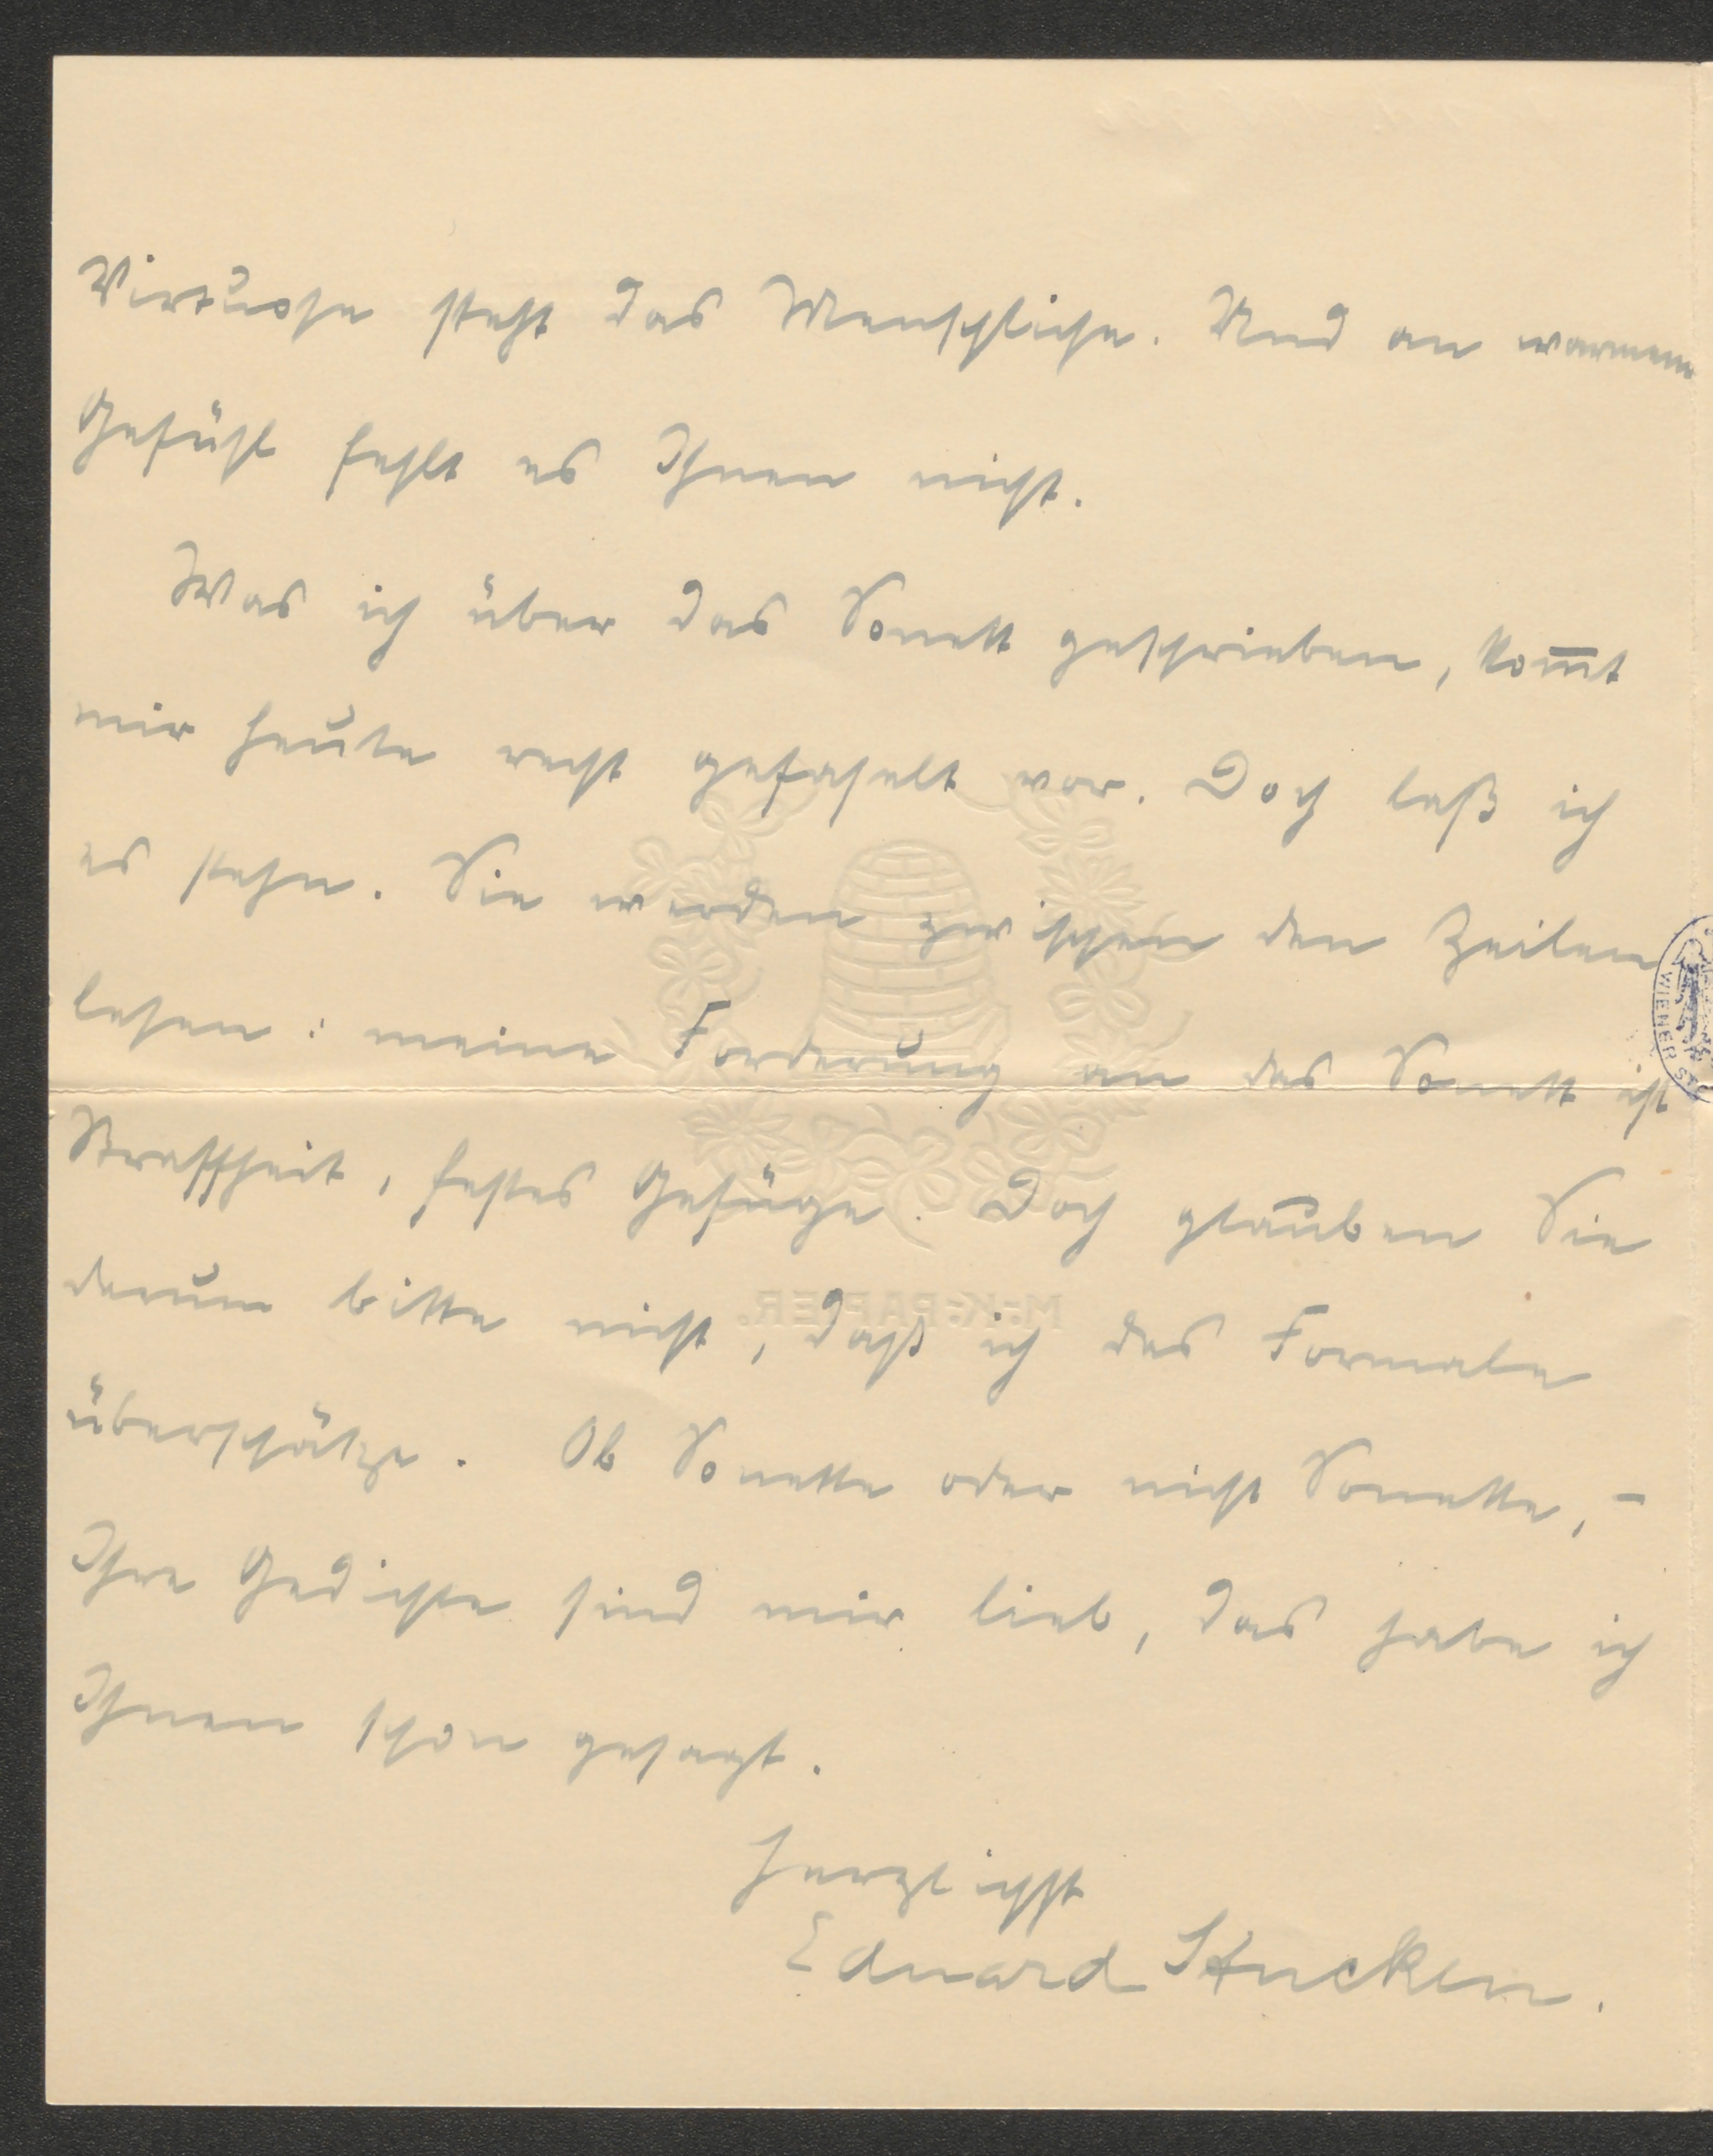 Virtuose steht das Menschliche. Und an warmem
Gefühl fehlt es Ihnen nicht.
Was ich über das Sonett geschrieben, kom̅t
mir heute recht gefaselt vor. Doch laß ich
es stehn. Sie werden zwischen den Zeilen
lesen: meine Forderung an das Sonett ist
Straffheit, festes Gefüge. Doch glauben Sie
darum bitte nicht, daß ich das Formale
überschätze. Ob Sonette oder nicht Sonette, –
Ihre Gedichte sind mir lieb, das habe ich
Ihnen schon gesagt.
Herzlichst
Eduard Stucken.
M.-K.-PAPIER.
WIENER ST